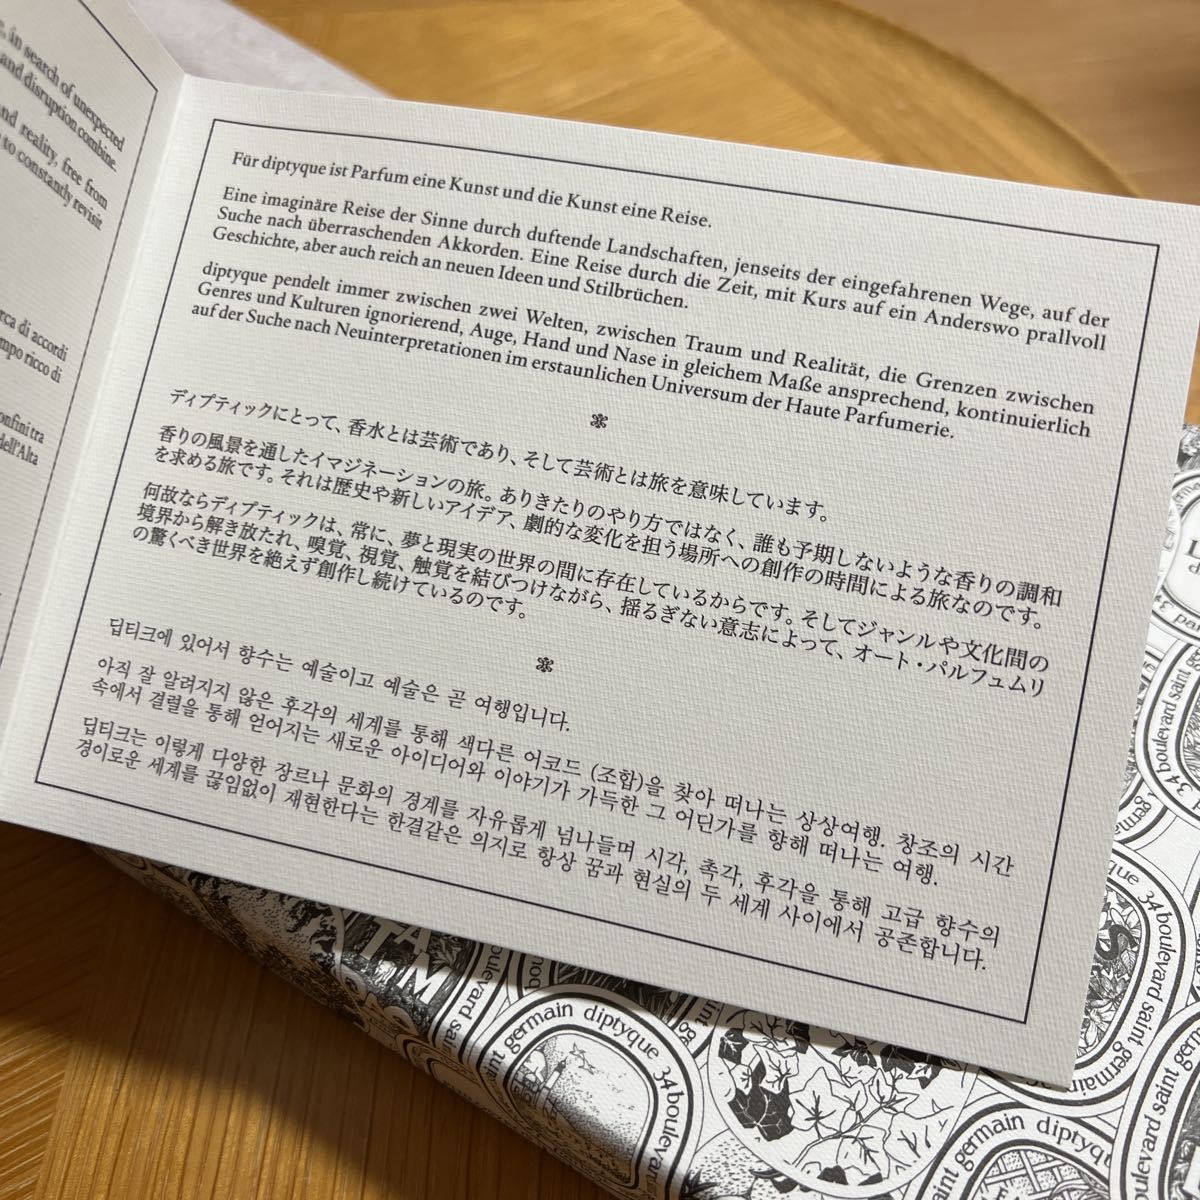 , in search of unexpected
and disruption combine.
nd reality, free from
to constantly revisit
rca di accordi
mpo ricco di
onfini tra
dell'Alta
Für diptyque ist Parfum eine Kunst und die Kunst eine Reise.
Eine imaginäre Reise der Sinne durch duftende Landschaften, jenseits der eingefahrenen Wege, auf der
Suche nach überraschenden Akkorden. Eine Reise durch die Zeit, mit Kurs auf ein Anderswo prallvoll
Geschichte, aber auch reich an neuen Ideen und Stilbrüchen.
diptyque pendelt immer zwischen zwei Welten, zwischen Traum und Realität, die Grenzen zwischen
Genres und Kulturen ignorierend, Auge, Hand und Nase in gleichem Maße ansprechend, kontinuierlich
auf der Suche nach Neuinterpretationen im erstaunlichen Universum der Haute Parfumerie.
ディプティックにとって、香水とは芸術であり、そして芸術とは旅を意味しています。
香りの風景を通したイマジネーションの旅。ありきたりのやり方ではなく、誰も予期しないような香りの調和
を求める旅です。それは歴史や新しいアイデア、劇的な変化を担う場所への創作の時間による旅なのです。
何故ならディプティックは、常に、夢と現実の世界の間に存在しているからです。そしてジャンルや文化間の
境界から解き放たれ、嗅覚、視覚、触覚を結びつけながら、揺るぎない意志によって、オート・パルフュムリ
の驚くべき世界を絶えず創作し続けているのです。
딥티크에 있어서 향수는 예술이고 예술은 곧 여행입니다.
아직 잘 알려지지 않은 후각의 세계를 통해 색다른 어코드 (조합)을 찾아 떠나는 상상여행. 창조의 시간
속에서 결렬을 통해 얻어지는 새로운 아이디어와 이야기가 가득한 그 어딘가를 향해 떠나는 여행.
딥티크는 이렇게 다양한 장르나 문화의 경계를 자유롭게 넘나들며 시각, 촉각, 후각을 통해 고급 향수의
경이로운 세계를 끊임없이 재현한다는 한결같은 의지로 항상 꿈과 현실의 두 세계 사이에서 공존합니다.
34 boulevard saint
germain
diptyque 34 boulevard saint germain
boulevard sai
saint germain diptyque 34 boulevard
saint germain diptyqu
boulevard saint